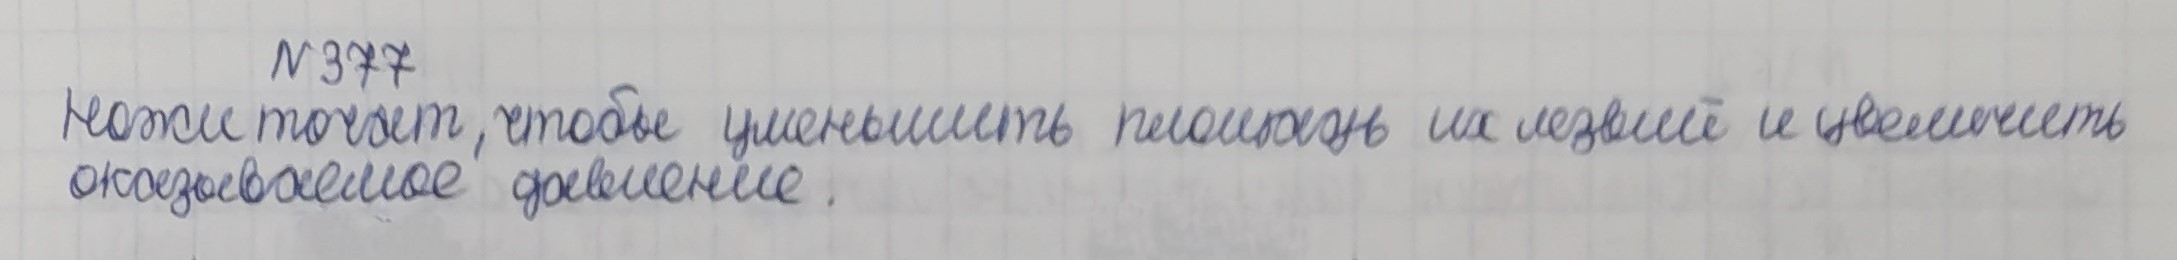 №377
Ножи точат, чтобы уменьшить площадь их лезвий и увеличить
оказываемое давление.